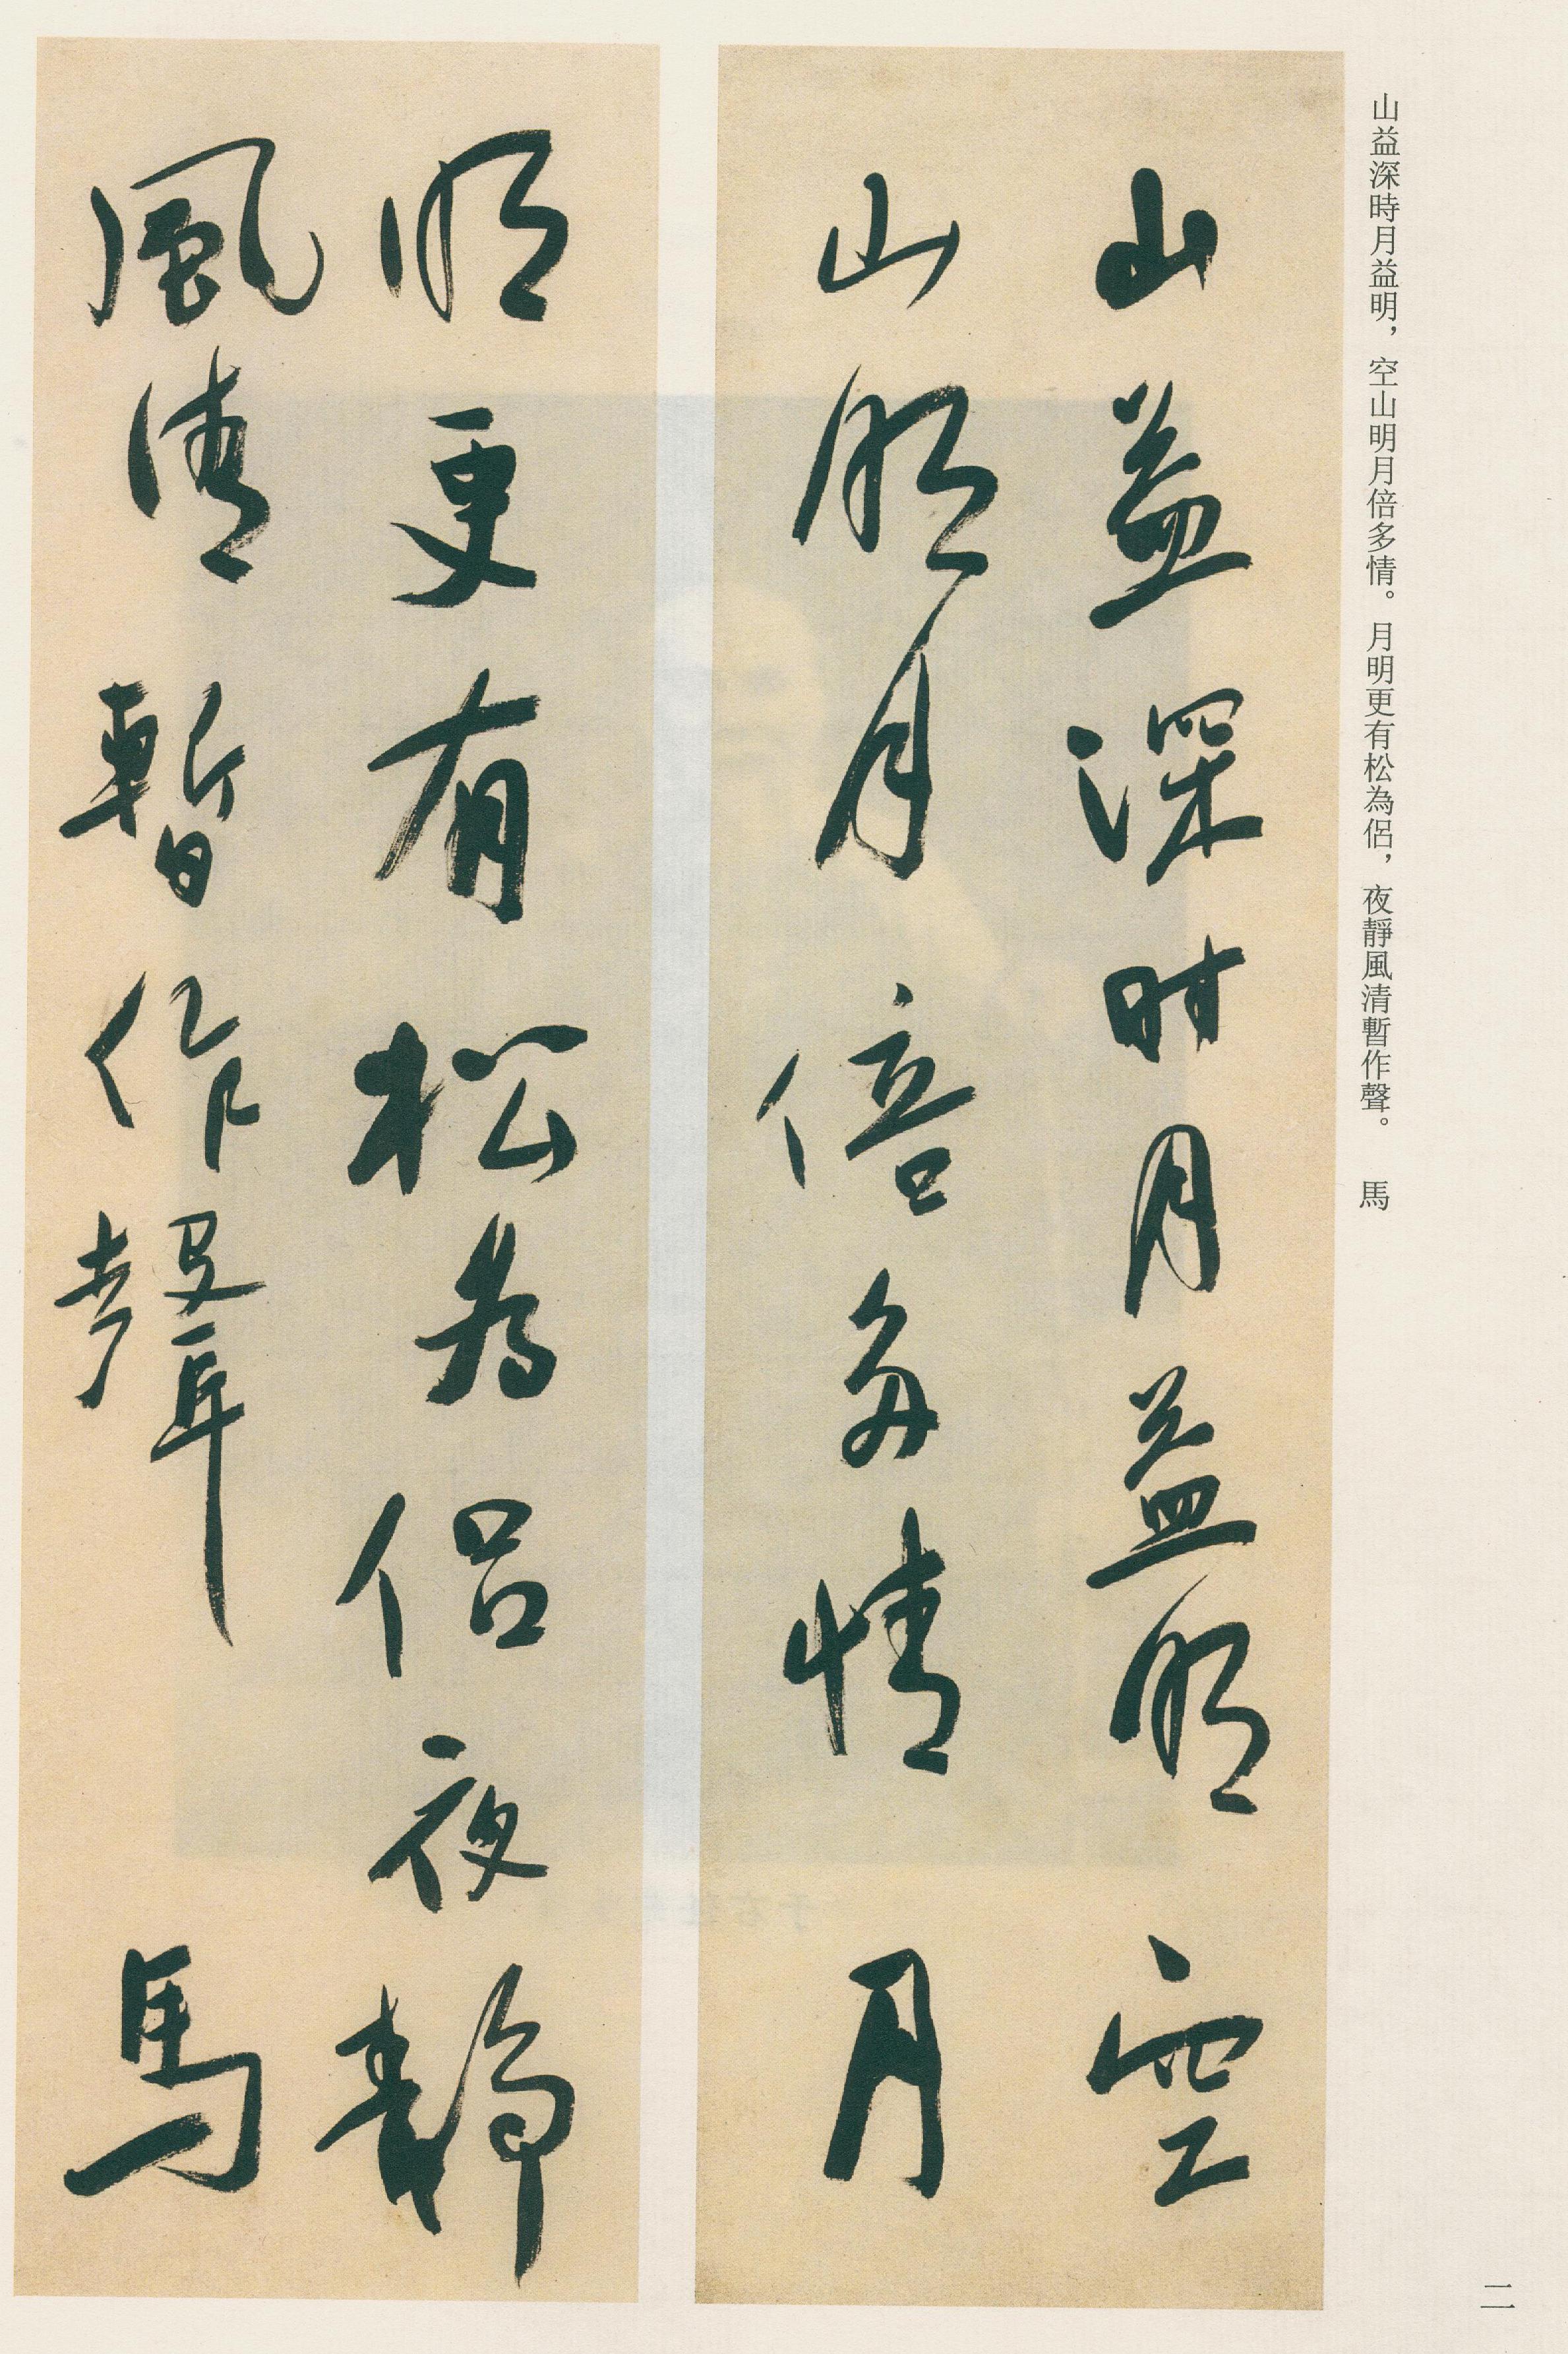 山益深時月益明，空山明月倍多情。月明更有松為侶，夜靜風清暫作聲。　馬
山益深时月益明空
山明月倍多情月
明更有松為侶夜靜
風清暫作聲馬
二